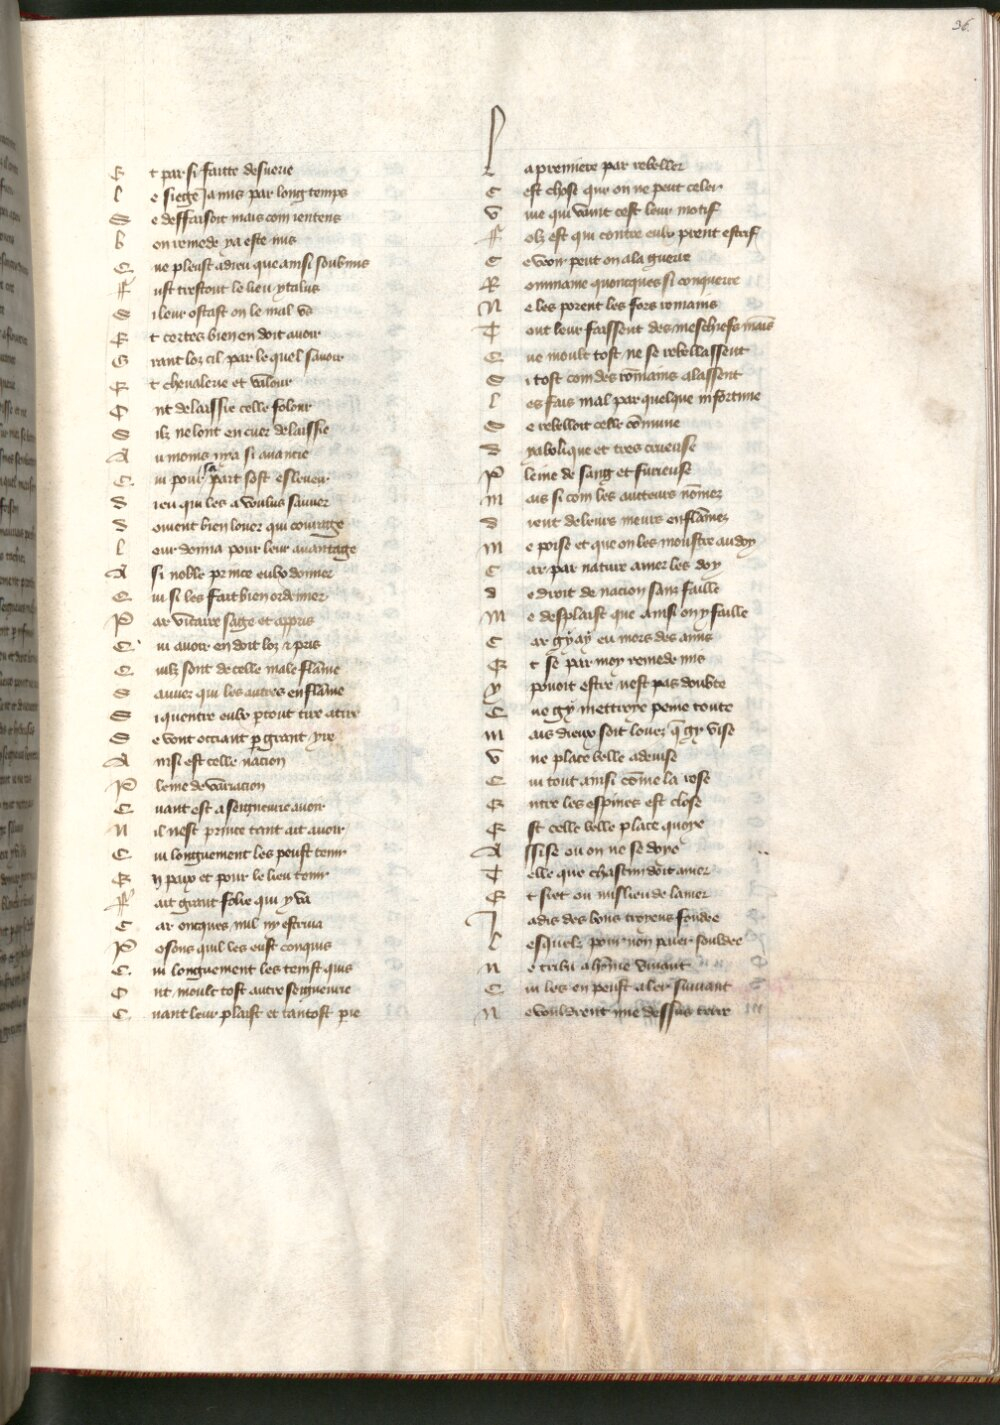 36
E t par si faitte desuerie
L e siege ja mis par long temps
S e deffaisoit mais com ientens
B on remede ya este mis
Q ue pleust a dieu que ainsi soubmis
F ust trestout le lieu ytalus
S i leur ostast on le mal us
E t certes bien en doit auoir
G rant loz cil par le quel sauoir
E t cheualerie et valour
O nt delaissie celle folour
S ilz ne lont en cuer delaissie
A u moins nira si auancie
Q ui pour sa part sost esleuer
D ieu qui les a voulus sauuer
D oiuent bien louer qui courage
L our donna pour leur auantage
A si noble prince eulx donner
Q ui si les fait bien ordener
P ar vicaire sage et appris
Q ui auoir en doit loz & pris
Q uilz sont de celle male flame
S auuez qui les autres enflame
S i quentre eulx ptout tire a tire
S e vont occiant p grant yre
A insi est celle nacion
P leine de variacion
Q uant est a seigneurie auoir
N il nest prince tant ait auoir
Q ui longuement les peust tenir
E n paix et pour le lieu tenir
F ait grant folie qui y va
C ar oncques nul ny estriua
P osons quil les eust conquis
Q ui longuement les tenist quis
O nt moult tost autre seigneurie
Q uant leur plaist et tantost perie
L a premiere par rebeller
C est chose que on ne peut celer
V ne qui vaint cest leur motif
F olz est qui contre eulx prent estrif
C e veoir peut on a la guerre
R ommaine quoncques si conquerre
N e les porent les fors romains
T ant leur faissent des meschiefs mais
Q ue moult tost ne se rebellassent
S i tost com des romains alassent
L es fais mal par quelque infortune
S e rebelloit celle comune
D yabolique et tres crueuse
P leine de sang et furieuse
M ais si com les aucteurs nomez
D ient de leurs meurs enflamez
M e poise et que on les moustre au doy
C ar par nature amer les doy
D e droit de nacion sanz faille
M e desplaist que ainsi on y faille
C ar gy ay eu mors des amis
E t se par moy remede mis
Y pouoit estre nest pas doubte
Q ue gy mettroye peine toute
M ais dieux soit louez q gy vise
V ne place belle a deuise
Q ui tout ainsi come la rose
E ntre les espines est close
E st celle belle place quoye
A ssise ou on ne se doye
T elle que chascun doit amer
E t siet ou millieu de la mer
J adis des bons troyens fondee
L esquelz pour non paier souldee
N e tribu a home viuant
Q ui les en peust aler suiuant
N e vouldrent mie dessus terre